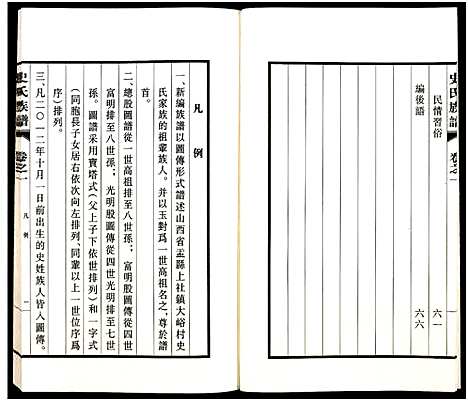 史氏族譜
卷之一
民情習俗 六一
編後語 六六
凡例
一、新編族譜以圖傳形式譜述山西省盂縣上社鎮大峪村史
氏家族的祖輩族人。并以玉對爲一世高祖名之，尊於譜
首。
二、總股圖譜從一世高祖排至八世孫；富明股圖傳從四世
富明排至八世孫；光明股圖傳從四世光明排至七世
孫。圖譜采用寶塔式（父上子下依世排列）和一字式
（同胞長子女居右依次向左排列、同輩以上一世位序爲
序）排列。
三、凡二〇一二年十月一日前出生的史姓族人皆入圖傳。
史氏族譜
卷之一
凡例
一